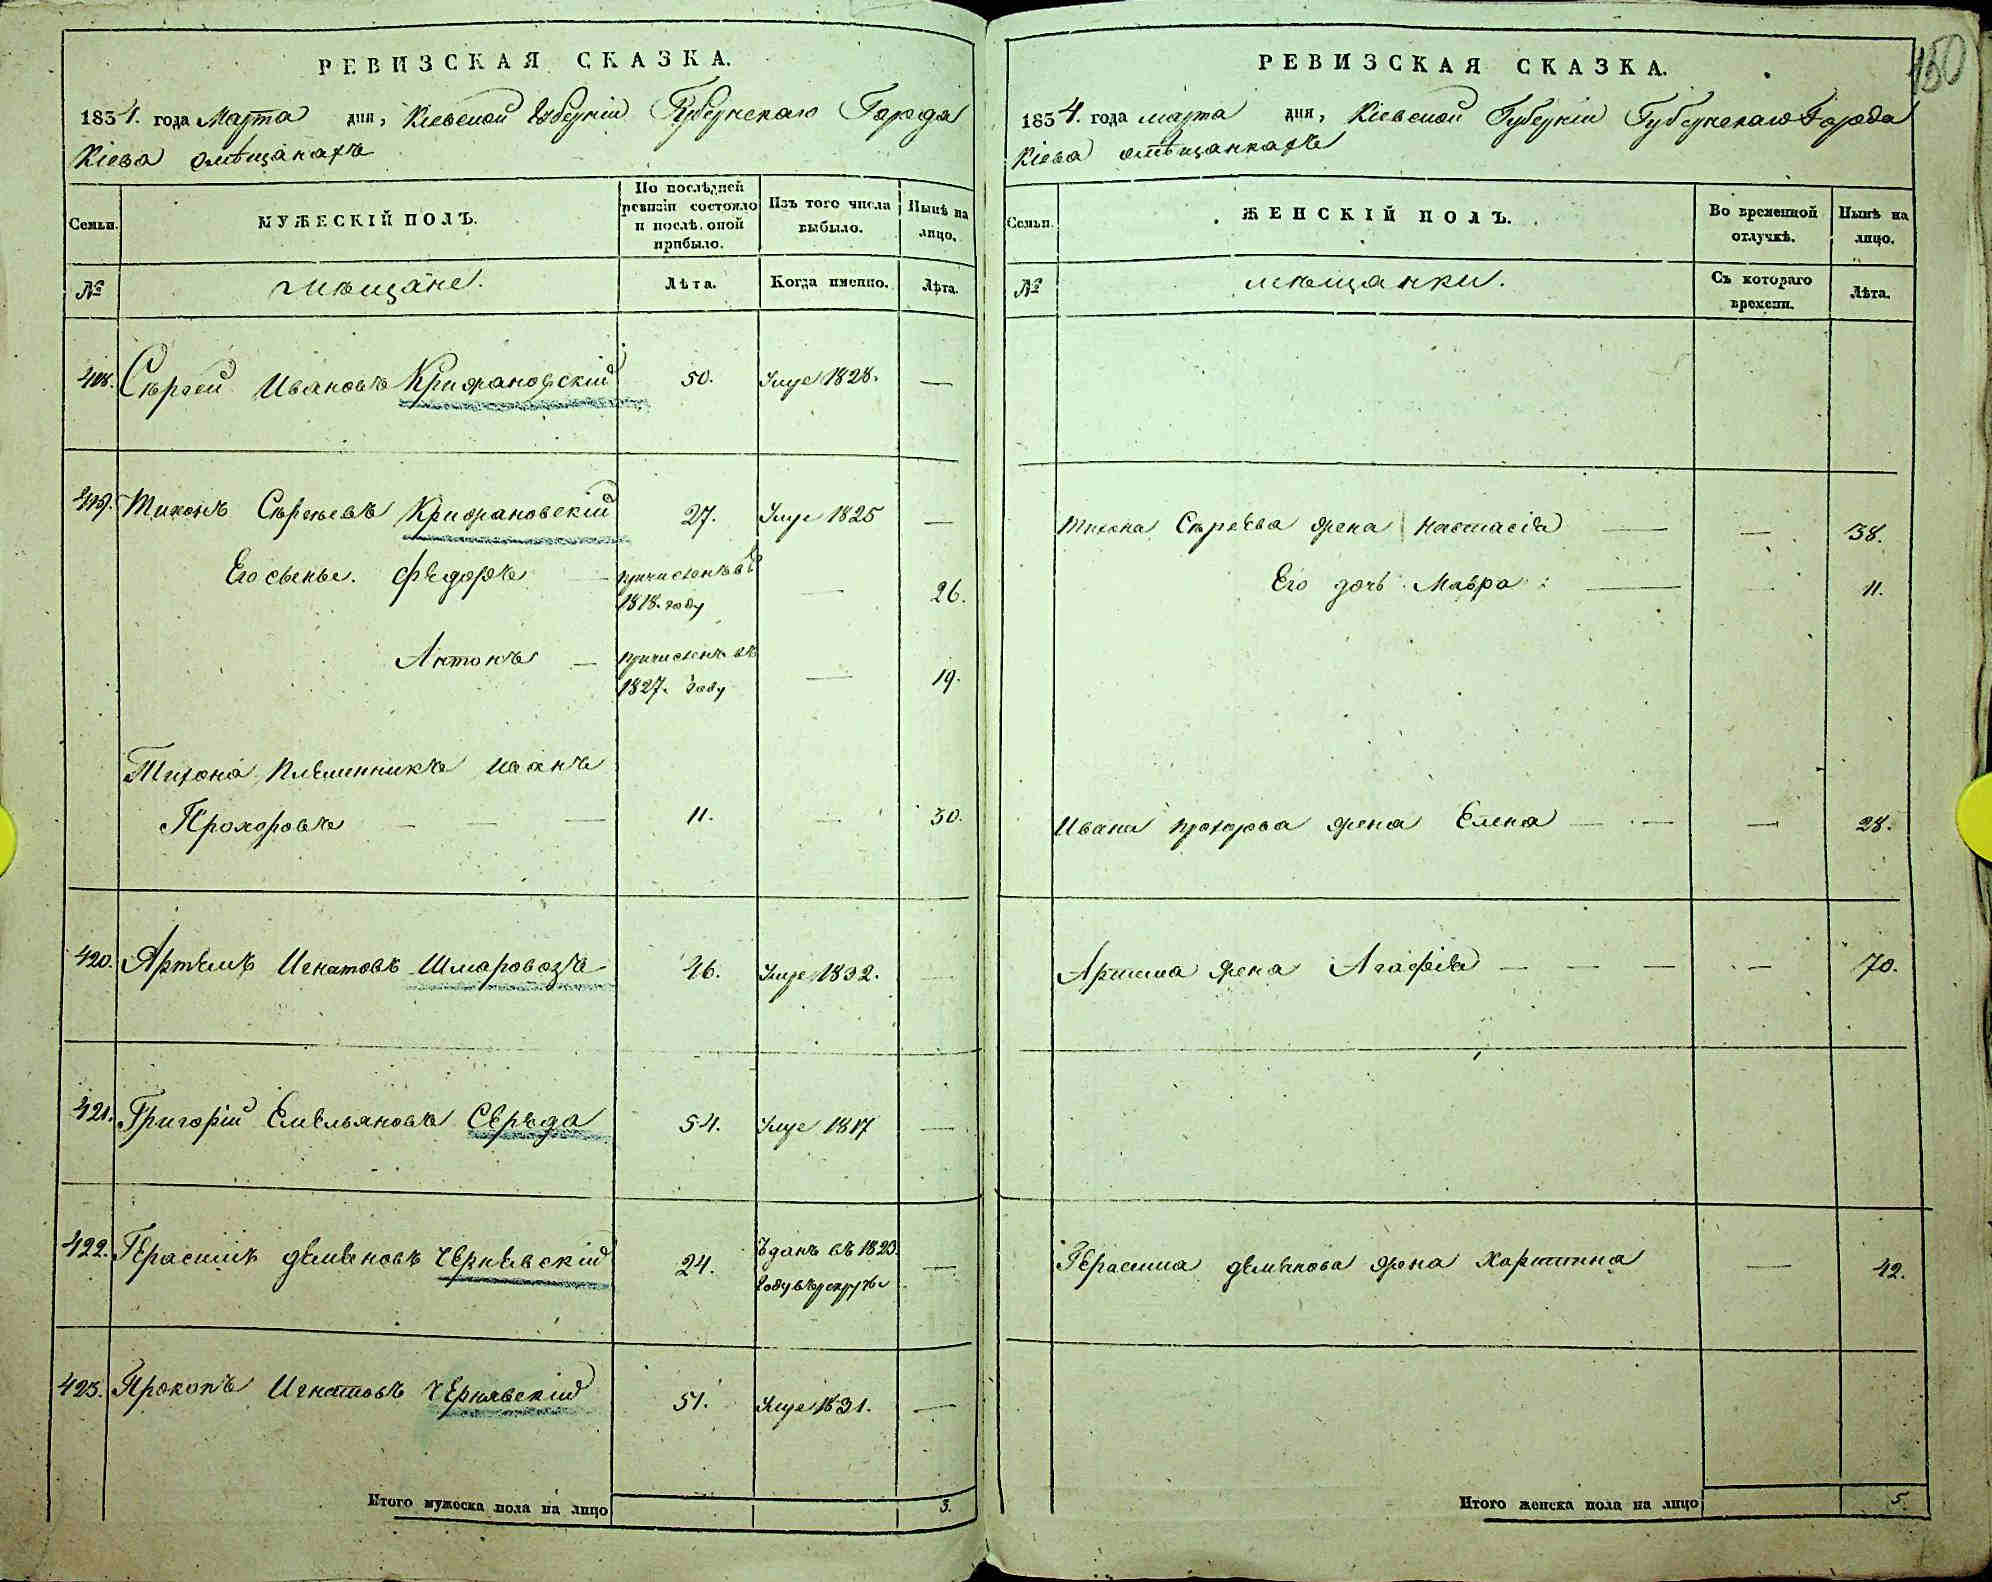 РЕВИЗСКАЯ СКАЗКА.
1834. года Марта дня, Кіевской Губерніи Губернскаго Города
Кіева омѣщанахъ
Семьи.
МУЖЕСКІЙ ПОЛЪ.
По послѣдней
ревизіи состояло
и послѣ оной
прибыло.
Изъ того числа
выбыло.
Нынѣ на
лицо.
№
мѣщане.
Лѣта.
Когда именно.
Лѣта.
418. Сергей Ивановъ Крижановскій 50. Умре 1828. —
419. Тихонъ Сергѣевъ Крижановскій 27. Умре 1825 —
Его сыновья. Федоръ — причисленъ въ
1818. году — 26.
Антонъ — причисленъ въ
1827. году — 19.
Тихона племянникъ Иванъ
Прохоровъ — — — 11. — 30.
420. Артемъ Игнатовъ Шмаровозъ 46. Умре 1832. —
421. Григорій Емельяновъ Середа 54. Умре 1817 —
422. Герасимъ Деменовъ Чернявскій 24. Зданъ въ 1820.
году въ рекруты —
423. Прокопъ Игнатовъ Чернявскій 51. Умре 1831. —
Итого мужеска пола на лицо 3.
150
РЕВИЗСКАЯ СКАЗКА.
1834. года марта дня, Кіевской Губерніи Губернскаго Города
Кіева омѣщанкахъ
Семьи.
ЖЕНСКІЙ ПОЛЪ.
Во временной
отлучкѣ.
Нынѣ на
лицо.
№
мѣщанки.
Съ котораго
времени.
Лѣта.
Тихона Сергѣева жена Настасія — — 38.
Его дочь Мавра: — — 11.
Ивана Прохорова жена Елена — — — 28.
Артема жена Агафія — — — — 70.
Герасима Деменова жена Харитина — 42.
Итого женска пола на лицо 5.